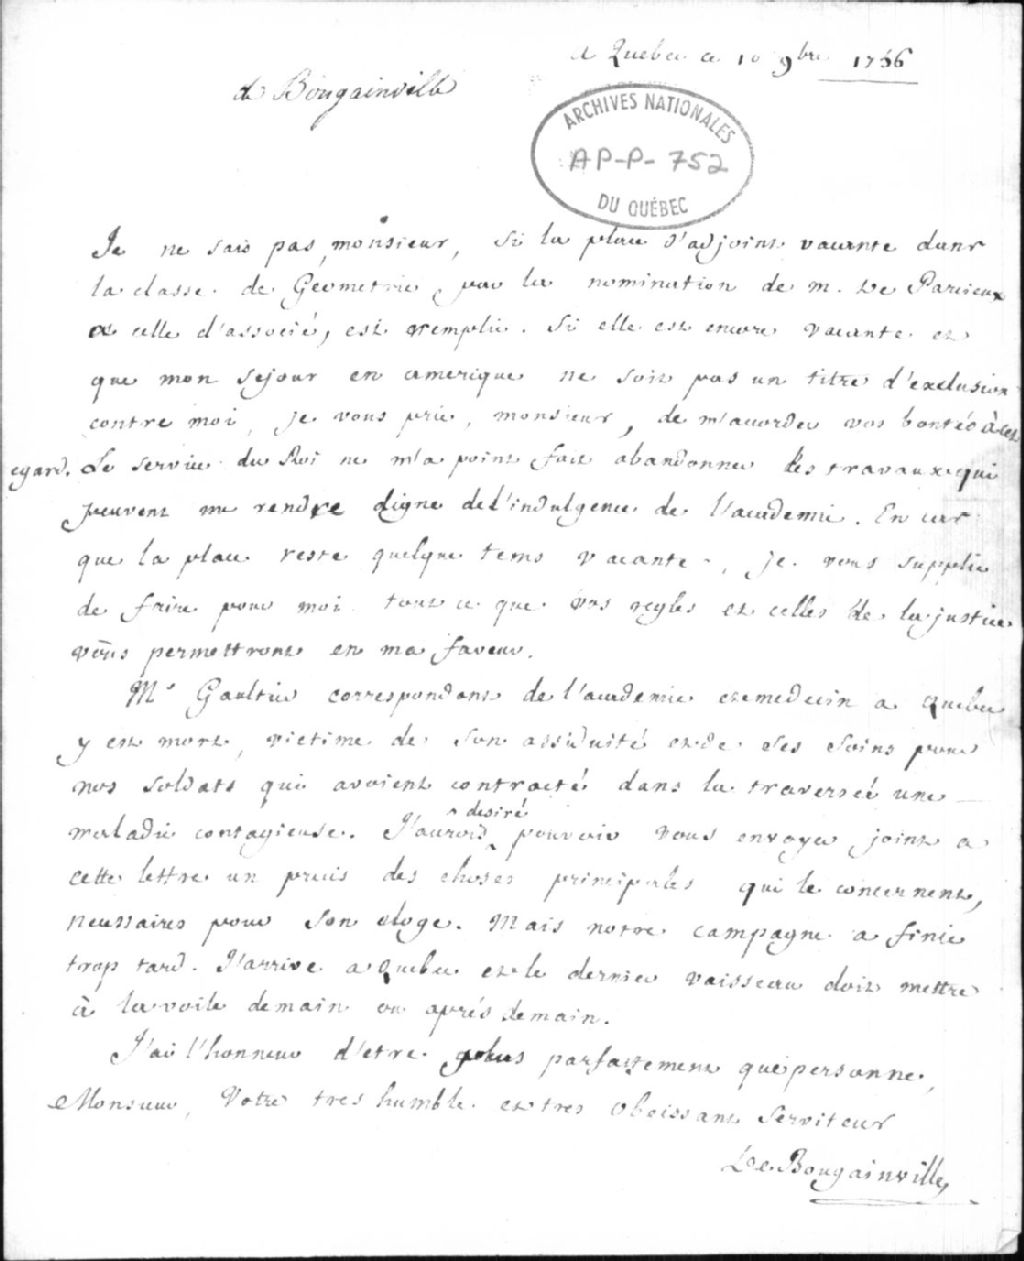 A Quebec ce 10 9bre 1756
de Bougainville
ARCHIVES NATIONALES
AP-P-752
DU QUÉBEC
Je ne sais pas, monsieur, si la place d'adjoint vacante dans
la classe de Geometrie, par la nomination de m. De Parcieux
a celle d'associé, est remplie. Si elle est encore vacante et
que mon sejour en amerique ne soit pas un titre d'exclusion
contre moi, je vous prie, monsieur, de m'accorder vos bontés à cet
egard. Le service du Roi ne m'a point fait abandonner les travaux qui
peuvent me rendre digne de l'indulgence de l'academie. En cas
que la place reste quelque tems vacante, je vous supplie
de faire pour moi tout ce que vos regles et celles de la justice
vous permettront en ma faveur.
Mr Gaultier correspondant de l'academie et medecin a Quebec
y est mort, victime de son assiduité et de ses soins pour
nos soldats qui avoient contracté dans la traversée une
maladie contagieuse. J'aurois desiré pouvoir vous envoyer joint a
cette lettre un precis des choses principales qui le concernent,
necessaires pour son eloge. Mais notre campagne a finie
trop tard. J'arrive a Quebec et le dernier vaisseau doit mettre
à la voile demain ou aprés demain.
J'ai l'honneur d'etre plus parfaitement que personne,
Monsieur, Votre tres humble et tres obeissant Serviteur
De Bougainville